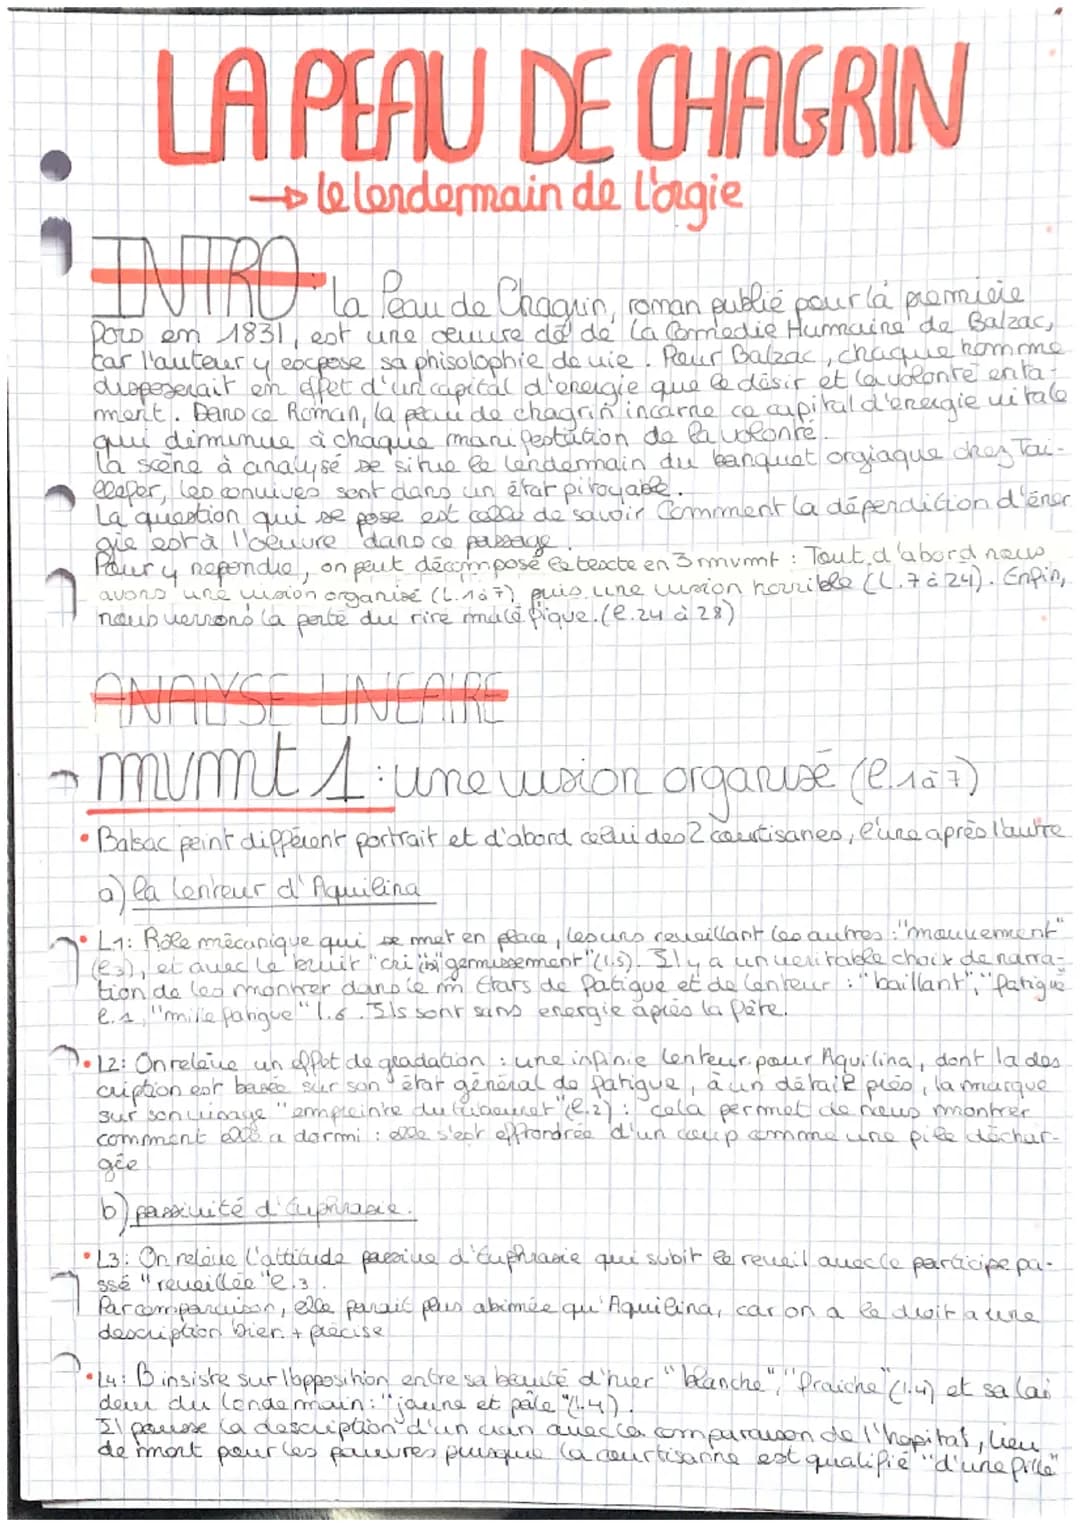 LA PEAU DE CHAGRIN
→ le lendemain de l'orgie
INTRO : La Peau de Chagrin, roman publié pour la première
fois en 1831, est une oeuvre clé de La Comédie Humaine de Balzac,
car l'auteur y expose sa phisolophie de vie. Pour Balzac, chaque homme
disposerait en effet d'un capital d'énergie que le désir et la volonté enta-
ment. Dans ce Roman, la peau de chagrin incarne ce capital d'énergie vitale
qui diminue à chaque manifestation de la volonté.
La scène à analysé se situe le lendemain du banquet orgiaque chez Tai-
llefer, les convives sont dans un état pitoyable.
La question qui se pose est celle de savoir Comment la déperdiction d'éner
gie est à l'oeuvre dans ce passage.
Pour y repondre, on peut décomposé le texte en 3 mvmt : Tout d'abord nous
avons une vision organisé (L.1 à 7), puis une vision horrible (L.7 à 24). Enfin,
nous verrons la perte du rire maléfique. (l.24 à 28)
ANALYSE LINEAIRE
mvmt 1 : une vision organisé (l.1 à 7)
• Balsac peint différent portrait et d'abord celui des 2 courtisanes, l'une après l'autre
a) la lenteur d'Aquilina
• L1: Rôle mécanique qui se met en place, les uns reveillant les autres : "mouvement"
(l.3), et avec le bruit "cri" "gemissement" (l.5). Il y a un veritable choix de narra-
tion de les montrer dans le m̂ états de fatigue et de lenteur : "baillant", "fatigue"
l.1, "mille fatigue" l.6. Ils sont sans energie après la fête.
• L2: On relève un effet de gradation : une infinie lenteur pour Aquilina, dont la des
cription est basée sur son état général de fatigue, à un détail près, la marque
sur son visage "empreinte du tabouret" (l.2) : cela permet de nous montrer
comment elle a dormi : elle s'est effrondrée d'un coup comme une pile déchar-
gée
b) passivité d'Euphrasie.
• L3: On relève l'attitude passive d'Euphrasie qui subit le reveil avec le participe pa-
ssé "reveillée" l.3.
Par comparaison, elle parait plus abimée qu'Aquilina, car on a le droit a une
description bien + précise
• L4: B insiste sur l'opposition entre sa beauté d'hier "blanche", "fraiche" (l.4) et sa lai
deur du lendemain : "jaune et pâle" (l.4).
Il pousse la description d'un cran avec la comparaison de l'hopital, lieu
de mort pour les pauvres puisque la courtisanne est qualifié "d'une fille"